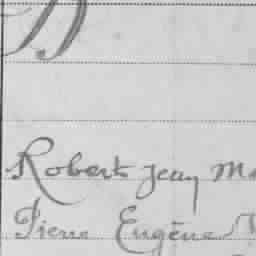 D
Robert Jean Ma
Pierre Eugène